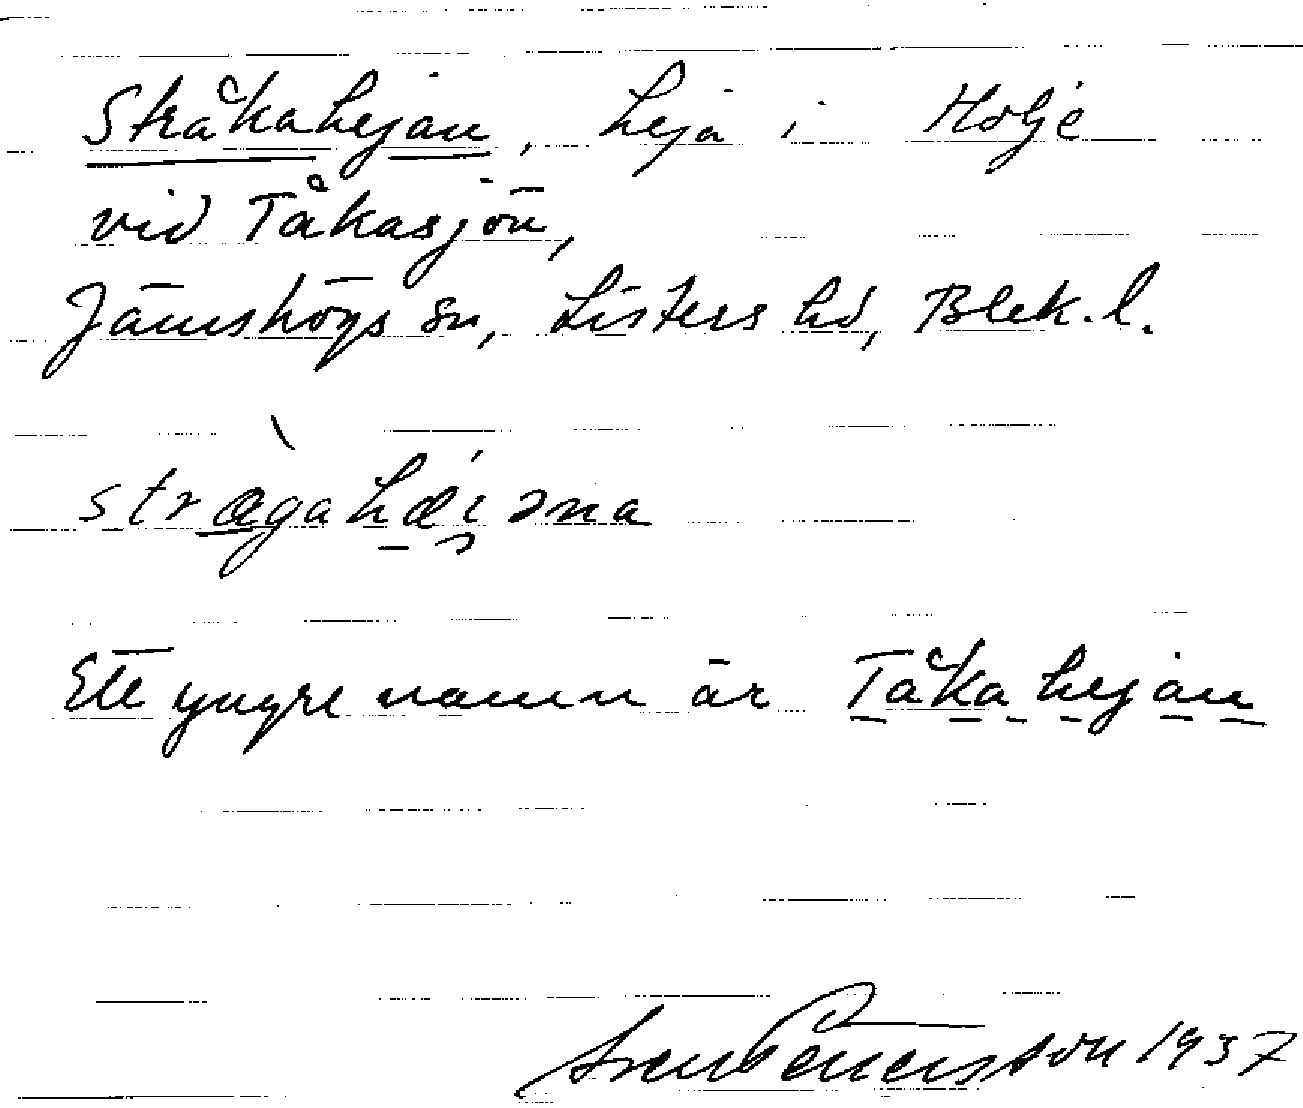 Stråkahejan, heja i Holje
vid Tåkasjön,
Jämshögs sn, Listers hd, Blek. l.
strægahæi̯əna
Ett yngre namn är Tåkahejan
Sven Benson 1937